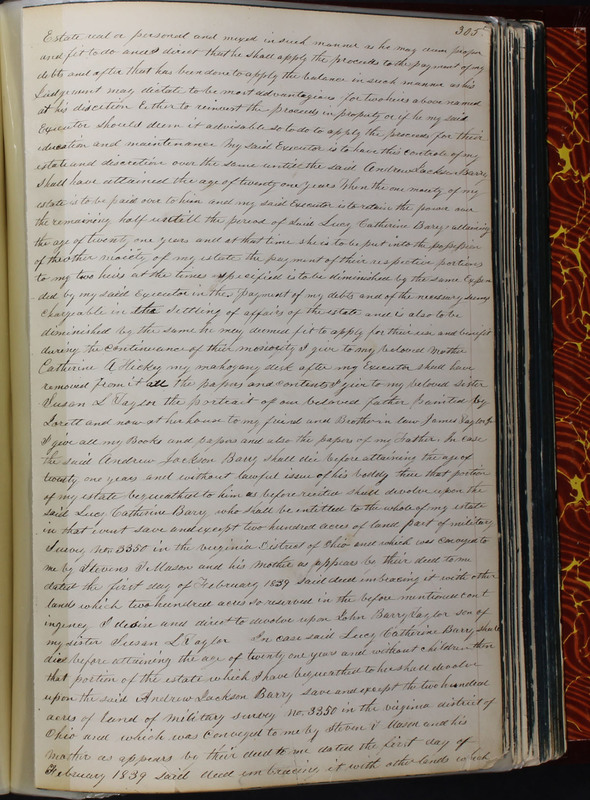 305
Estate real or personal and mixed in such manner as he may deem proper
and fit to do and I direct that he shall apply the proceeds to the payment of my
debts and after that has been done to apply the balance in such manner as his
Judgement may dictate to be most advantagious for two heirs above named
at his discretion Either to reinvest the proceeds in property or if he my said
Executor should deem it advisable so to do to apply the proceeds for their
education and maintenance My said Executor is to have this controle of my
estate and discretion over the same untill the said Andrew Jackson Barry
shall have attained the age of twenty one years When the one moiety of my
estate is to be paid over to him and my said Executor is to retain the power over
the remaining half untill the period of said Lucy Catherine Barry attaining
the age of twenty one years and at that time she is to be put into the possession
of the other moiety of my estate the payment of their respective portions
to my two heirs at the times specified is to be diminished by the same expen
ded by my said Executor in the payment of my debts and of the necessary sums
chargeable in the settling of affairs of the estate and is also to be
diminished by the same he may deemed fit to apply for their use and benefit
during the continuance of their minority I give to my beloved Mother
Catherine A Hickey my mahogany desk after my Executor shall have
removed from it all the papers and contents I give to my beloved sister
Susan L Taylor the portrait of our beloved father Painted by
Jorett and now at her house to my friend and Brother in law James Taylor Jr
I give all my Books and papers and also the papers of my Father. In case
the said Andrew Jackson Barry shall die before attaining the age of
twenty one years and without lawful issue of his boddy then that portion
of my estate bequeathed to him as before recited shall devolve upon the
said Lucy Catherine Barry who shall be entitled to the whole of my estate
in that event save and except two hundred acres of land part of military
Survey no. 3350 in the virginia District of Ohio and which was conveyed to
me by Stevens T Mason and his Mother as appears by their deed to me
dated the first day of February 1839 said deed embracing it with other
lands which two hundred acres so reserved in the before mentioned cont
ingency I desire and direct to devolve upon John Barry Taylor son of
my sister Susan L Taylor In case said Lucy Catherine Barry shall
die before attaining the age of twenty one years and without children then
that portion of the estate which I have bequeathed to her shall devolve
upon the said Andrew Jackson Barry save and except the two hundred
acres of land of military survey no. 3350 in the virginia district of
Ohio and which was Conveyed to me by Steven T Mason and his
Mother as appears by their deed to me dated the first day of
February 1839 said deed embracing it with other lands which